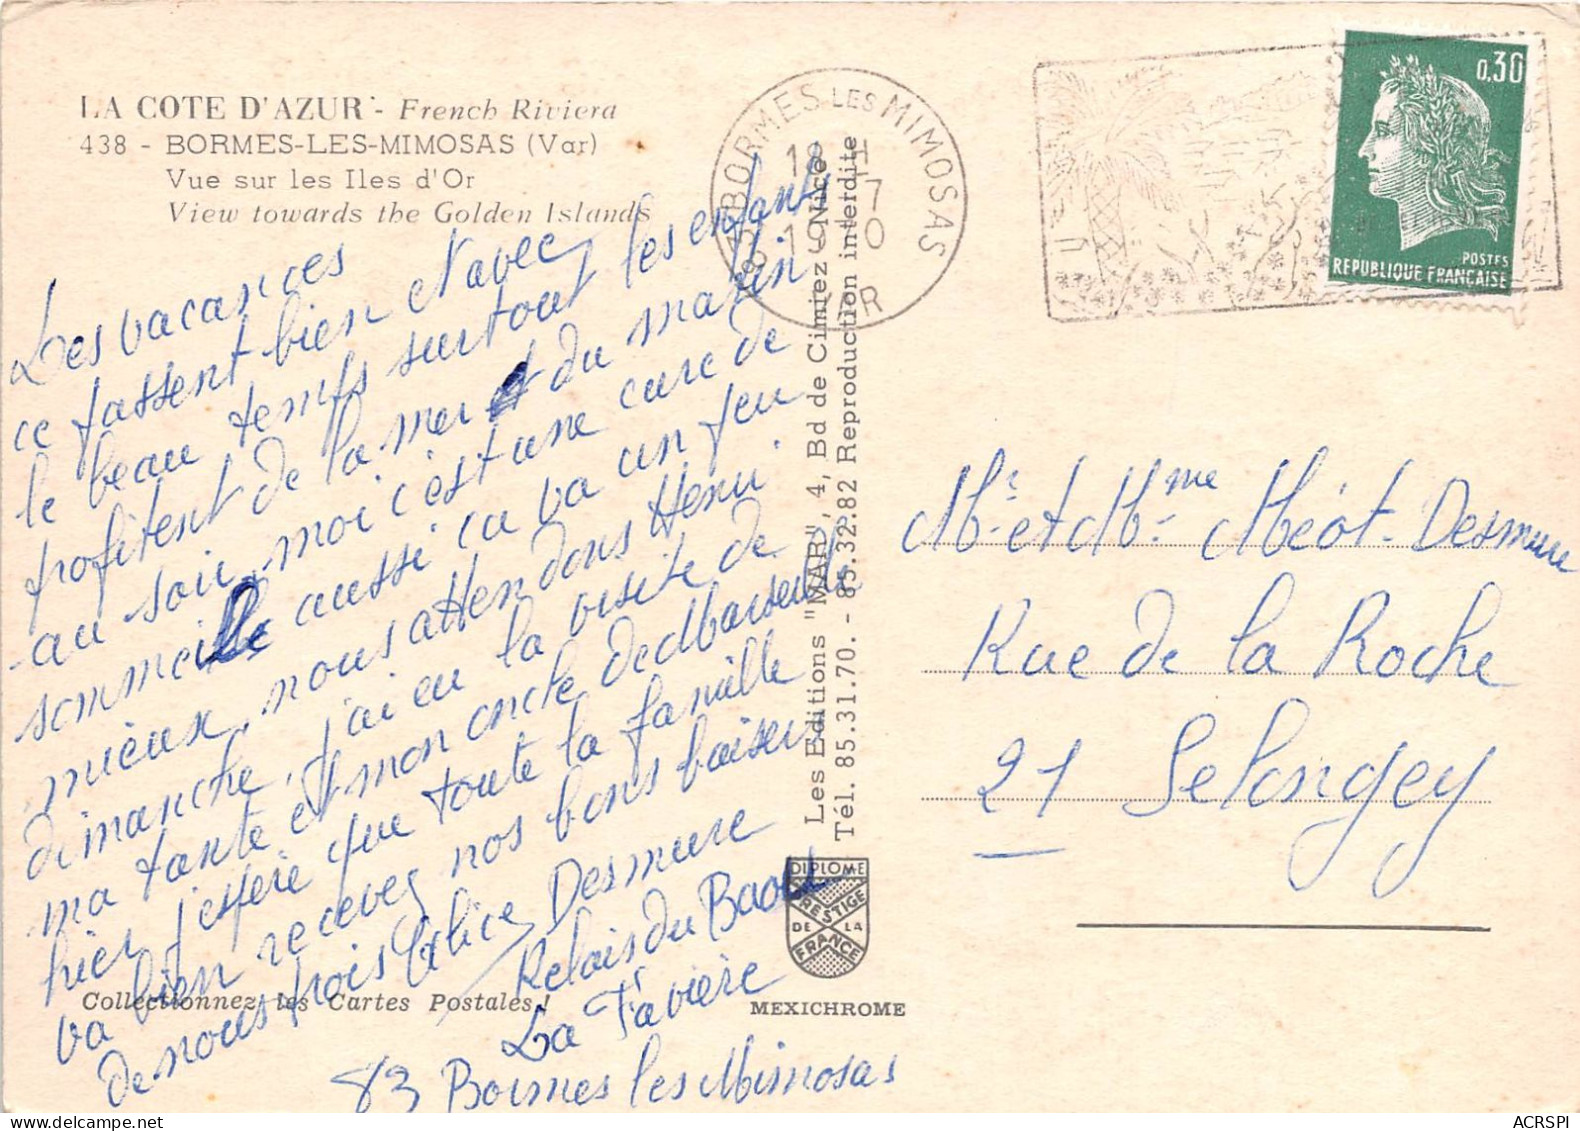 LA COTE D'AZUR - French Riviera
438 - BORMES-LES-MIMOSAS (Var)
Vue sur les Iles d'Or
View towards the Golden Islands
Les vacances
ce passent bien et avec
le beau temps surtout les enfants
profitent de la mer du matin
au soir, moi c'est une cure de
sommeille aussi ca va un peu
mieux, nous attendons Henri
dimanche, j'ai eu la visite de
ma tante et mon oncle de Marseille
hier j'espère que toute la famille
va bien recevez nos bons baisers
de nous trois Alice Desmure
Relais du Baou
La Favière
83 Bormes les Mimosas
Collectionnez les Cartes Postales !
83 BORMES LES MIMOSAS
VAR
Les Editions "MAR", 4, Bd de Cimiez - Nice
Tél. 85.31.70. - 85.32.82 Reproduction interdite
DIPLOME
PRESTIGE
DE LA
FRANCE
MEXICHROME
0,30
POSTES
REPUBLIQUE FRANÇAISE
Mr. et Mme Méot-Desmure
Rue de la Roche
21 Selongey
ACRSPI